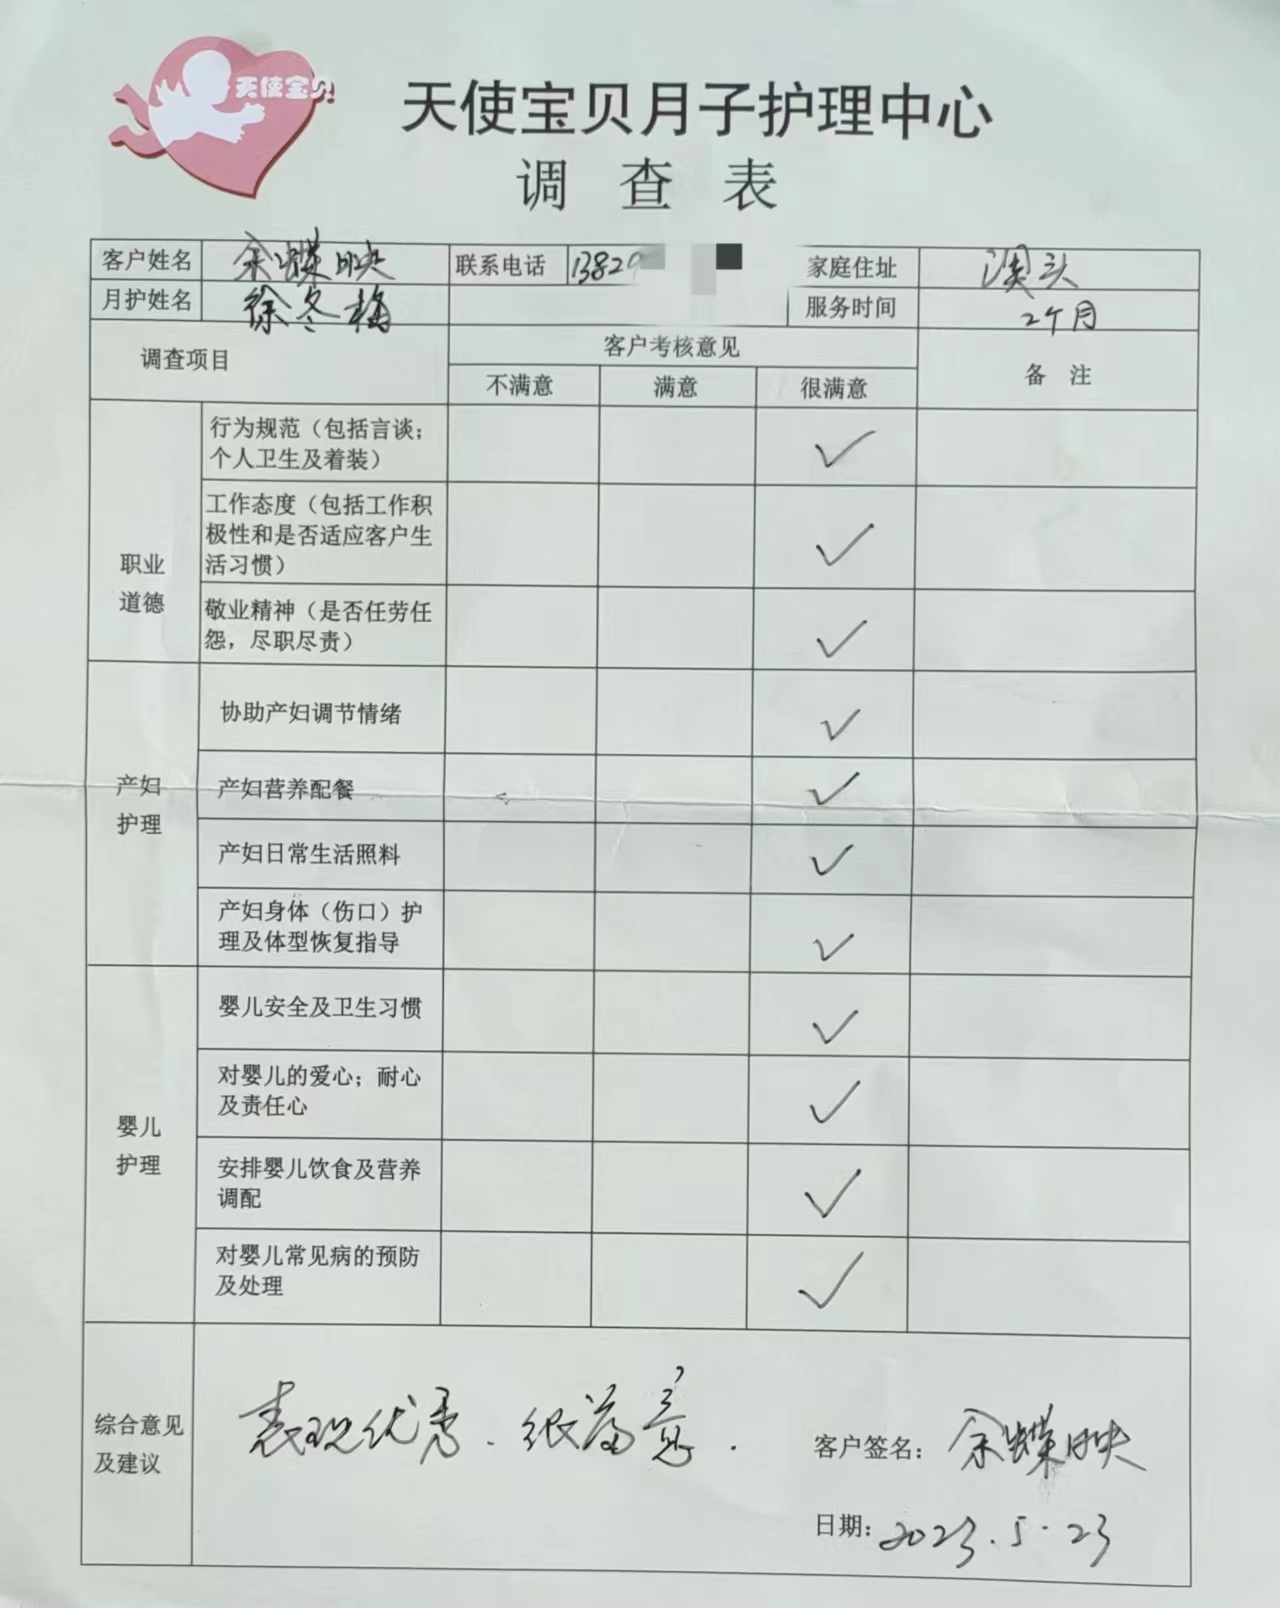 天使宝贝
天使宝贝月子护理中心
调 查 表
客户姓名 余蝶映 联系电话 13829 家庭住址 澳头
月护姓名 徐冬梅 服务时间 2个月
调查项目 客户考核意见 备 注
不满意 满意 很满意
职业
道德
行为规范（包括言谈；
个人卫生及着装） ✓
工作态度（包括工作积
极性和是否适应客户生
活习惯） ✓
敬业精神（是否任劳任
怨，尽职尽责） ✓
产妇
护理
协助产妇调节情绪 ✓
产妇营养配餐 ✓
产妇日常生活照料 ✓
产妇身体（伤口）护
理及体型恢复指导 ✓
婴儿
护理
婴儿安全及卫生习惯 ✓
对婴儿的爱心；耐心
及责任心 ✓
安排婴儿饮食及营养
调配 ✓
对婴儿常见病的预防
及处理 ✓
综合意见
及建议
表现优秀．很满意．
客户签名：余蝶映
日期：2023.5.23